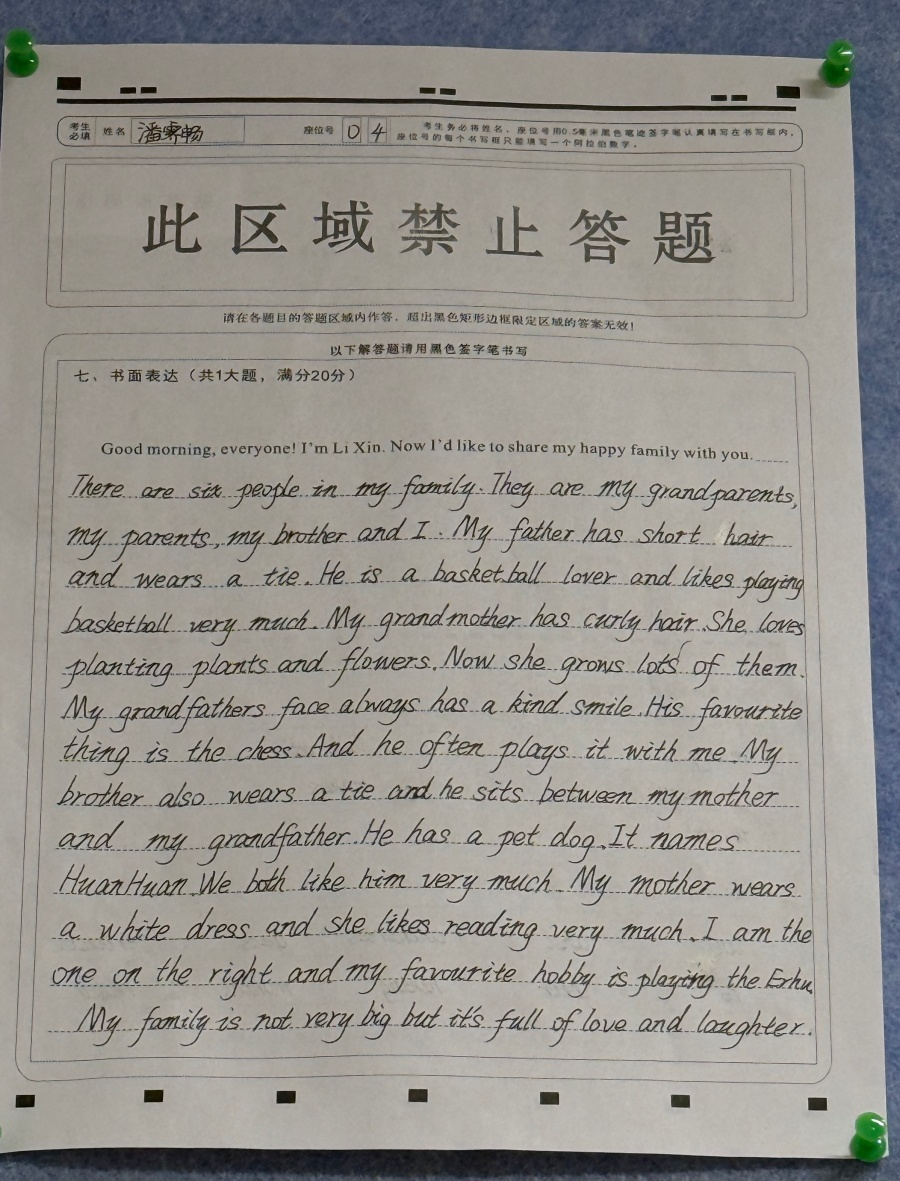 考生必填 姓名 潘霁畅 座位号 0 4 考生务必将姓名、座位号用0.5毫米黑色笔迹签字笔认真填写在书写框内,
座位号的每个书写框只能填写一个阿拉伯数字。
此区域禁止答题
请在各题目的答题区域内作答,超出黑色矩形边框限定区域的答案无效!
以下解答题请用黑色签字笔书写
七、书面表达(共1大题,满分20分)
Good morning, everyone! I'm Li Xin. Now I'd like to share my happy family with you.
There are six people in my family. They are my grandparents,
my parents, my brother and I. My father has short hair
and wears a tie. He is a basketball lover and likes playing
basketball very much. My grandmother has curly hair. She loves
planting plants and flowers. Now she grows lots of them.
My grandfathers face always has a kind smile. His favourite
thing is the chess. And he often plays it with me. My
brother also wears a tie and he sits between my mother
and my grandfather. He has a pet dog. It names
HuanHuan. We both like him very much. My mother wears
a white dress and she likes reading very much. I am the
one on the right and my favourite hobby is playing the Erhu.
My family is not very big but it's full of love and laughter.